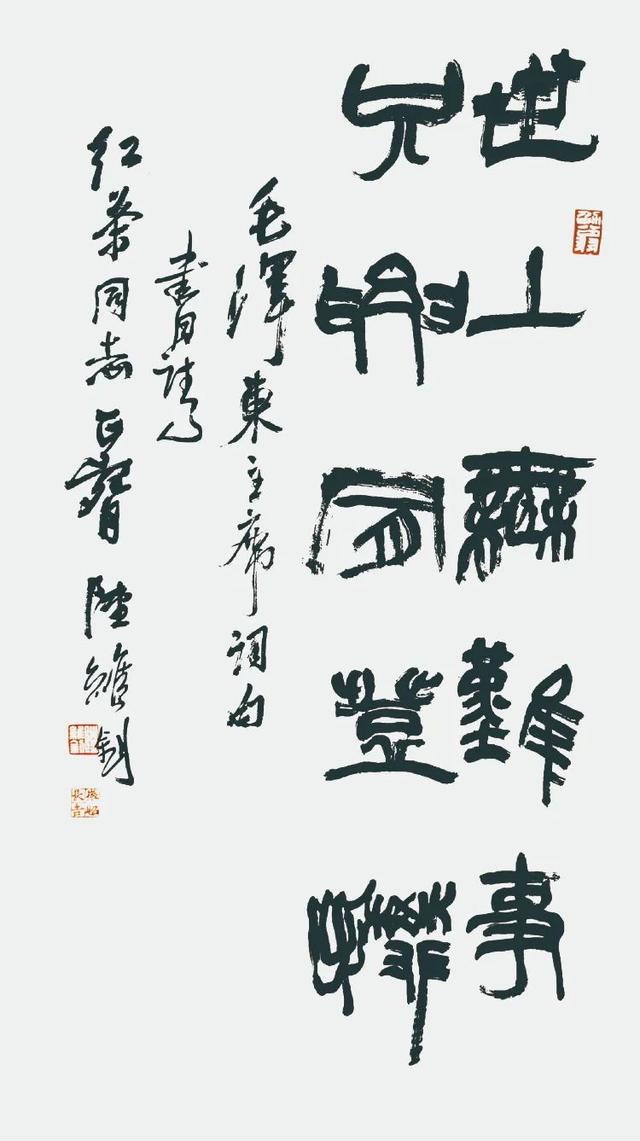 世上無難事
只要肯登攀
毛澤東主席詞句
書
红同志正 陸維釗